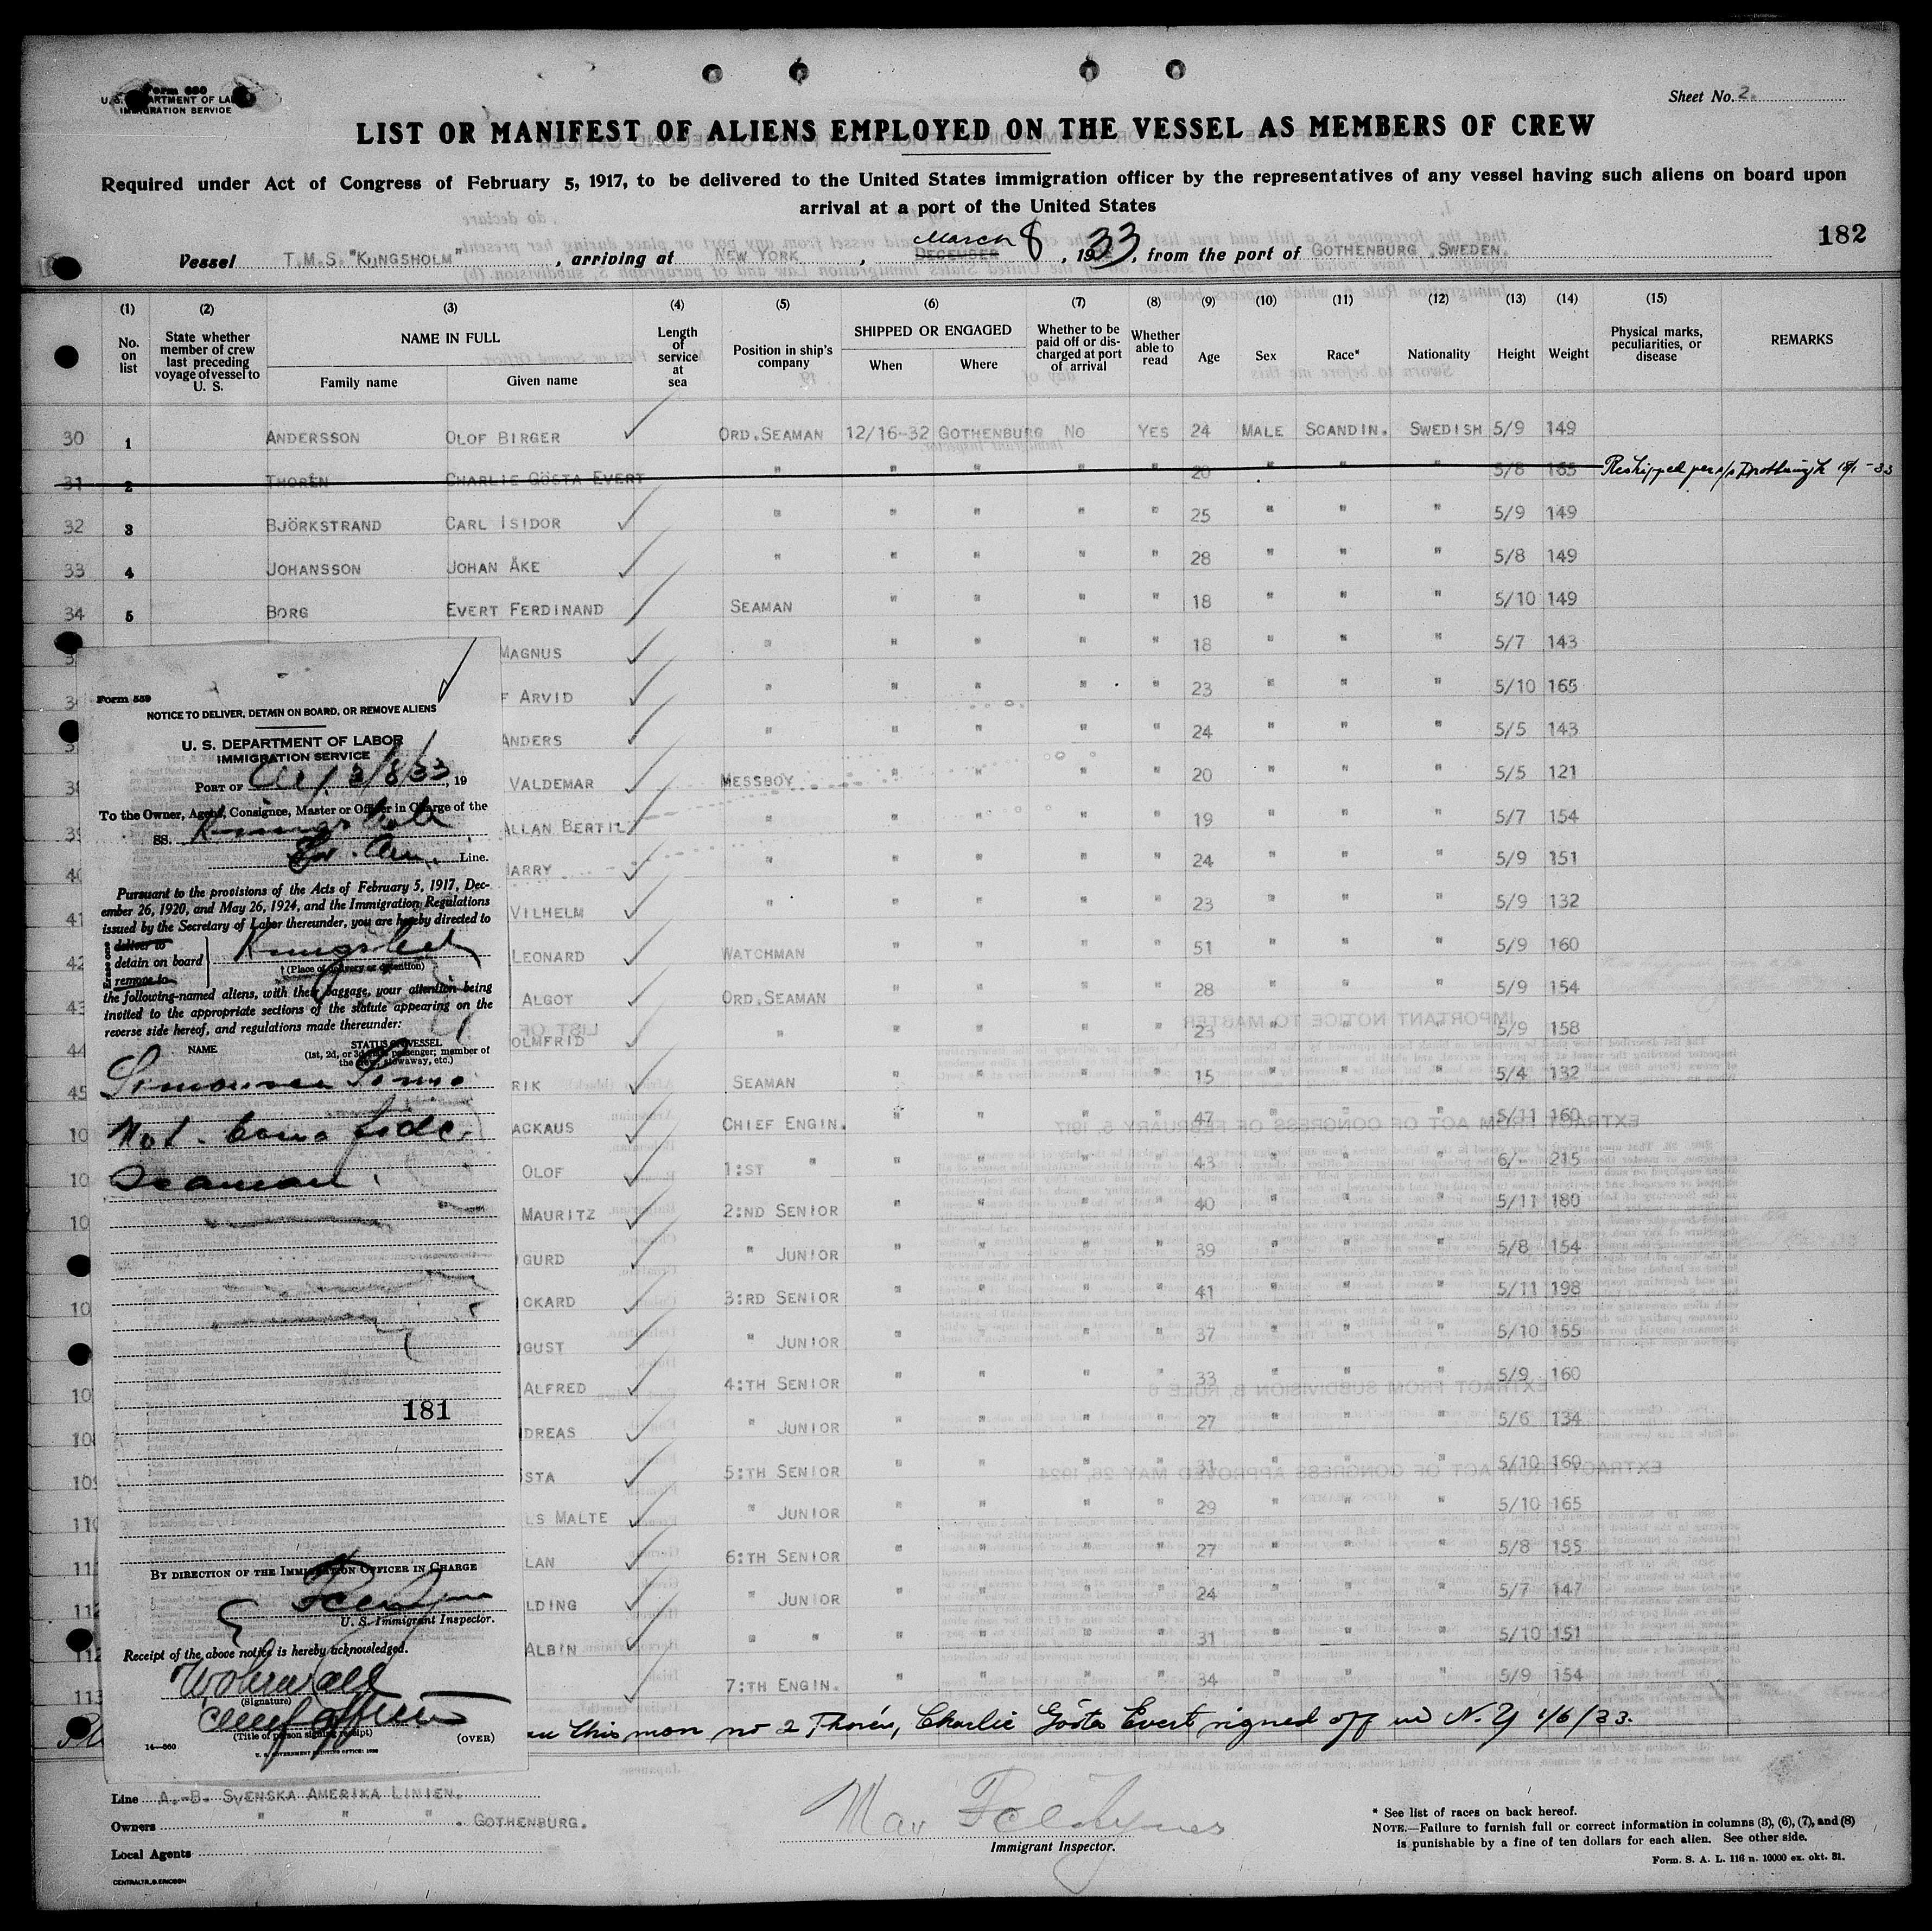 Form 680
U. S. DEPARTMENT OF LABOR
IMMIGRATION SERVICE
Sheet No. 2.
LIST OR MANIFEST OF ALIENS EMPLOYED ON THE VESSEL AS MEMBERS OF CREW
Required under Act of Congress of February 5, 1917, to be delivered to the United States immigration officer by the representatives of any vessel having such aliens on board upon
arrival at a port of the United States
182
Vessel T.M.S. "KUNGSHOLM", arriving at NEW YORK, DECEMBER March 8, 1933, from the port of GOTHENBURG, SWEDEN.
(1) (2) (3) (4) (5) (6) (7) (8) (9) (10) (11) (12) (13) (14) (15)
No. on list State whether member of crew last preceding voyage of vessel to U. S. NAME IN FULL Family name Given name Length of service at sea Position in ship's company SHIPPED OR ENGAGED When Where Whether to be paid off or discharged at port of arrival Whether able to read Age Sex Race* Nationality Height Weight Physical marks, peculiarities, or disease REMARKS
30 1 ANDERSSON OLOF BIRGER ORD.SEAMAN 12/16-32 GOTHENBURG NO YES 24 MALE SCANDIN. SWEDISH 5/9 149
31 2 THORÉN CHARLIE GÖSTA EVERT " " " " " 20 " " " 5/8 165 Reshipped per
32 3 BJÖRKSTRAND CARL ISIDOR " " " " " 25 " " " 5/9 149
33 4 JOHANSSON JOHAN ÅKE " " " " " 28 " " " 5/8 149
34 5 BORG EVERT FERDINAND SEAMAN " " " " 18 " " " 5/10 149
MAGNUS " " " " " 18 " " " 5/7 143
F ARVID " " " " " 23 " " " 5/10 165
ANDERS " " " " " 24 " " " 5/5 143
VALDEMAR MESSBOY " " " " 20 " " " 5/5 121
39 ALLAN BERTIL " " " " " 19 " " " 5/7 154
40 HARRY " " " " " 24 " " " 5/9 151
41 VILHELM " " " " " 23 " " " 5/9 132
42 LEONARD WATCHMAN " " " " 51 " " " 5/9 160
43 ALGOT ORD.SEAMAN " " " " 28 " " " 5/9 154
44 OLMFRID " " " " " 23 " " " 5/9 158
45 RIK SEAMAN " " " " 15 " " " 5/4 132
10 ACKAUS CHIEF ENGIN. " " " " 47 " " " 5/11 160
10 OLOF 1:ST " " " " " 43 " " " 6/- 215
10 MAURITZ 2:ND SENIOR " " " " 40 " " " 5/11 180
GURD " JUNIOR " " " " 39 " " " 5/8 154
10 CKARD 3:RD SENIOR " " " " 41 " " " 5/11 198
GUST " JUNIOR " " " " 37 " " " 5/10 155
10 ALFRED 4:TH SENIOR " " " " 33 " " " 5/9 160
108 DREAS " JUNIOR " " " " 27 " " " 5/6 134
109 STA 5:TH SENIOR " " " " 31 " " " 5/10 160
110 LS MALTE " JUNIOR " " " " 29 " " " 5/10 165
11 LAN 6:TH SENIOR " " " " 27 " " " 5/8 155
112 LDING " JUNIOR " " " " 24 " " " 5/7 147
112 ALBIN " " " " " " 31 " " " 5/10 151
113 7:TH ENGIN. " " " " 34 " " " 5/9 154
this man no 2 Thorén, Charlie Gösta Evert signed off in N.Y 1/6/33.
Form 559
NOTICE TO DELIVER, DETAIN ON BOARD, OR REMOVE ALIENS
U. S. DEPARTMENT OF LABOR
IMMIGRATION SERVICE
PORT OF N.Y. 3/8/33, 19
To the Owner, Agent, Consignee, Master or Officer in Charge of the
SS. Kungsholm
Sw. Am. Line.
Pursuant to the provisions of the Acts of February 5, 1917, Dec-
ember 26, 1920, and May 26, 1924, and the Immigration Regulations
issued by the Secretary of Labor thereunder, you are hereby directed to
Erase one
deliver to
detain on board Kungsholm
remove to
†(Place of delivery or detention)
the following-named aliens, with their baggage, your attention being
invited to the appropriate sections of the statute appearing on the
reverse side hereof, and regulations made thereunder:
NAME
STATUS ON VESSEL
(1st, 2d, or 3d class passenger; member of
the crew, stowaway, etc.)
Not bona fide
Seaman.
181
BY DIRECTION OF THE IMMIGRATION OFFICER IN CHARGE
U. S. Immigrant Inspector.
Receipt of the above notice is hereby acknowledged.
(Signature)
Chief officer
(Title of person signing receipt)
14—660
(OVER)
U. S. GOVERNMENT PRINTING OFFICE: 1930
Line A.-B. SVENSKA AMERIKA LINIEN.
Owners " " " . GOTHENBURG.
Local Agents
CENTRALTR. G. ERICSON
Immigrant Inspector.
* See list of races on back hereof.
NOTE.—Failure to furnish full or correct information in columns (3), (6), (7), and (8)
is punishable by a fine of ten dollars for each alien. See other side.
Form. S. A. L. 116 n. 10000 ex. okt. 31.